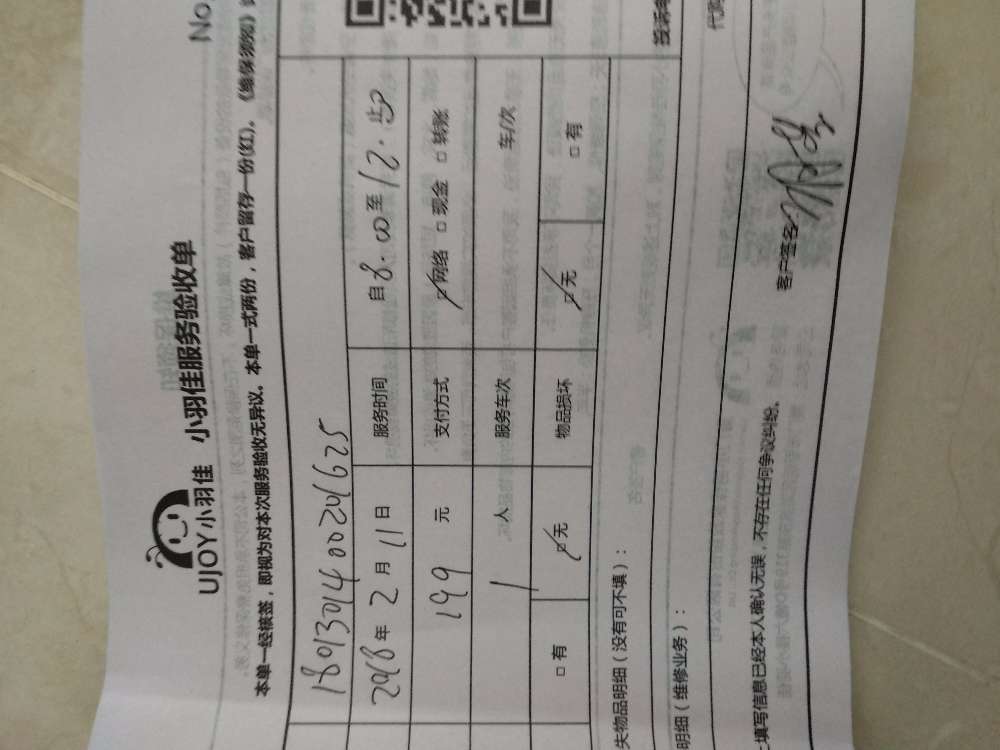 No.
UJOY小羽佳 小羽佳服务验收单
本单一经核签，即视为对本次服务验收无异议。本单一式两份，客户留存一份(红)。《维保须知》
18013014002401625
2018年2月11日 服务时间 自8:00至12:00止
199元 支付方式 ☑网络 □现金 □转账
1人 服务车次 车/次
□有 ☑无 物品损坏 ☑无 □有
失物品明细（没有可不填）： 投诉
明细（维修业务）：
代
上填写信息已经本人确认无误，不存在任何争议纠纷。 客户签名